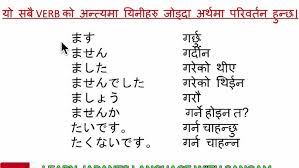 यो सबै VERB को अन्त्यमा यिनीहरु जोड्दा अर्थमा परिवर्तन हुन्छ।
ます गर्छु
ません गर्दीन
ました गरेको थीए
ませんでした गरेको थिईन
ましょう गरौ
ませんか गर्ने होइन त?
たいです。 गर्न चाहन्छु
たくないです。 गर्न चाहन्न
LEARN JAPANESE LANGUAGE WITH SANGAM